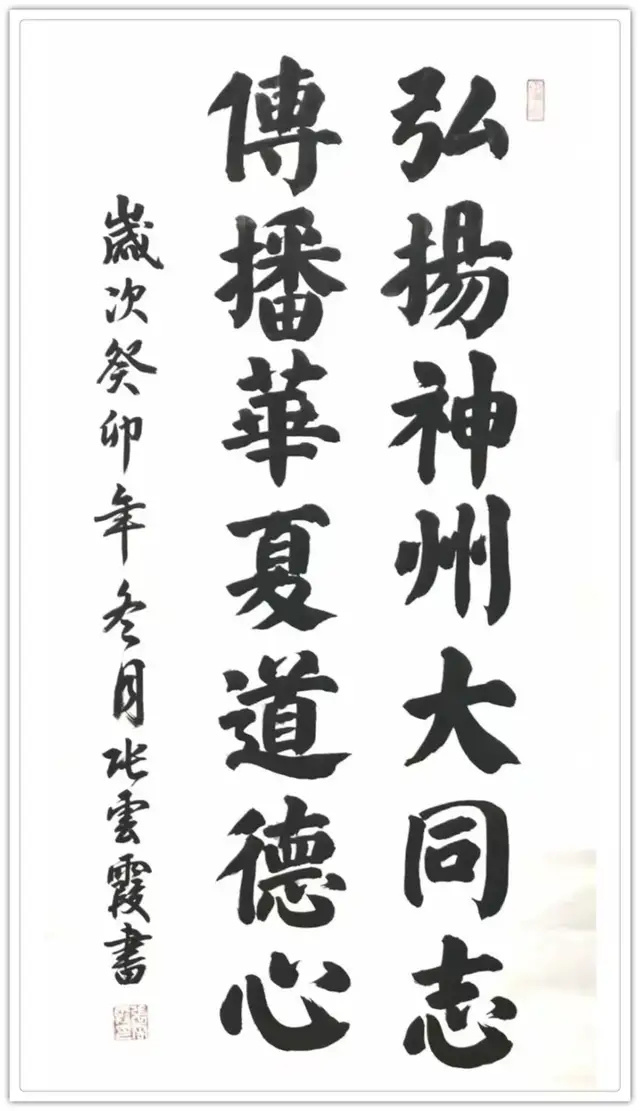 弘揚神州大同志
傳播華夏道德心
歲次癸卯年冬月张雲霞書